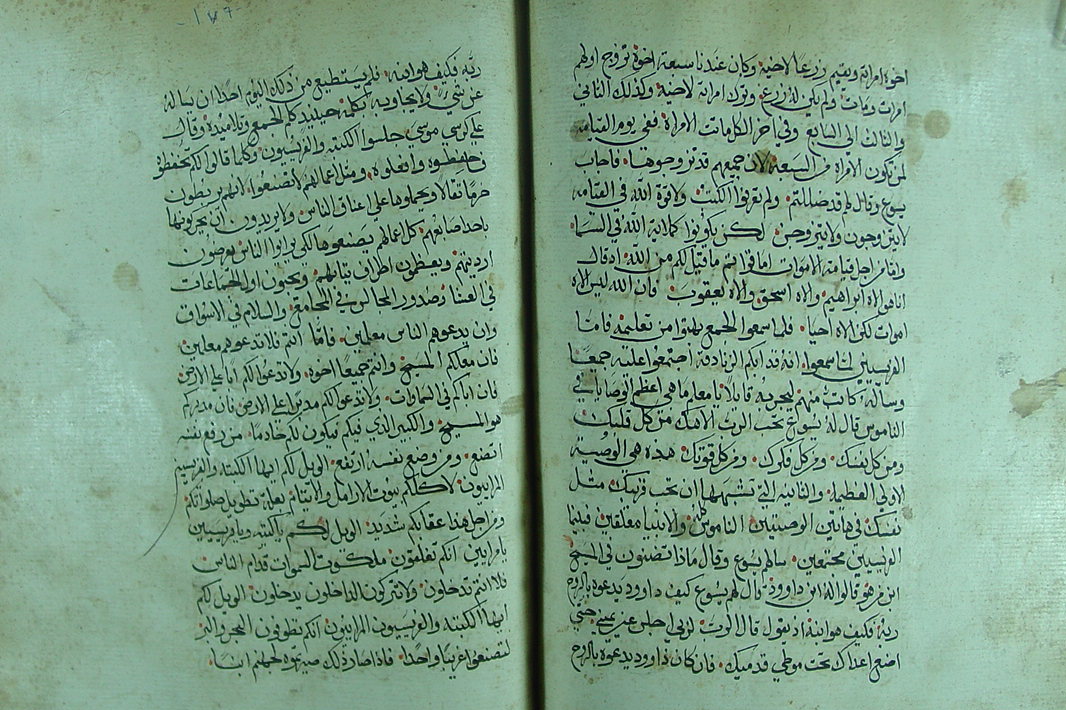 اخوه امراته ويقيم زرعا لاخيه وكان عندنا سبعة اخوة تزوج اولهم
امراة ومات ولم يكن له زرع وترك امراته لاخيه وكذلك الثاني
والثالث الى السابع وفي اخر الكل ماتت الامراة ففي يوم القيامه
لمن تكون الامراه من السبعة لان جميعهم قد تزوجوها فاجاب
يسوع وقال لهم قد ضللتم ولم تعرفوا الكتب ولا قوة الله في القيامه
لايتزوجون ولايتزوجن لكن يكونوا كملايكة الله في السما
واما من اجل قيامة الاموات اما قراتم ما قيل لكم من الله اذ قال
اناهو الاه ابراهيم والاه اسحق والاه يعقوب فان الله ليس الاه
اموات لكن الاه احيا فلما سمعوا الجمع بهتوا من تعليمه فاما
الفريسيين لما سمعوا انه قد ابكم الزنادقة اجتمعوا عليه جميعا
وساله كاتب منهم ليجربه قايلا يامعلم ماهي اعظم الوصايا في
الناموس قال له يسوع تحب الرب الاهك من كل قلبك
ومن كل نفسك ومن كل فكرك ومن كل قوتك هذه هي الوصية
الاولي العظيمة والثانية التي تشبهها ان تحب قريبك مثل
نفسك في هاتين الوصيتين الناموس والانبيا معلقين فيما
الفريسيين مجتمعين سالهم يسوع وقال ماذا تضنون في المسيح
ابن من هو قالوا له ابن داوود قال لهم يسوع كيف داوود يدعوه بالروح
ربه فكيف هو ابنه اذ يقول قال الرب لربي اجلس عن يميني حتي
اضع اعداك تحت موطي قدميك فان كان داوود يدعوه بالروح
١٧٦
ربه فكيف هو ابنه فلم يستطيع من ذلك اليوم احدا ان يساله
عن شي ولا يجاوبه بكلمة حينيد كلم الجمع وتلاميذه وقال
على كرسي موسي جلسوا الكتبه والفريسيون وكلما قالوا لكم تحفظوه
فاحفظوه وافعلوه ومثل اعمالهم لاتصنعوا لانهم يربطون
حزما ثقالا ويحملوها على اعناق الناس ولا يريدون ان يحركوها
باحد اصابعهم كل اعمالهم يصنعوها لكي يراوا الناس يعرضون
ارديتهم ويعظمون اطراف ثيابهم ويحبون اول الجماعات
في العشا وصدور المجالس في المجامع والسلام في الاسواق
وان يدعوهم الناس معلمين فاما انتم فلا تدعوهم معلمين
فان معلمكم المسيح وانتم جميعا اخوه ولاتدعوا لكم ابا علي الارض
فان اباكم في السماوات ولا تدعوا لكم مدبرا علي الارض فان مدبركم
هو المسيح والكبير الذي فيكم فيكون لكم خادما من رفع نفسه
اتضع ومن وضع نفسه ارتفع الويل لكم ايها الكتبه والفريسيين
المرايين لاكلكم بيوت الارامل والايتام بعلة تطويل صلواتكم
ومن اجل هذا عقابكم شديد الويل لكم ياكتبه ويافريسيين
يامرايين انكم تغلقون ملكوت السموات قدام الناس
فلا انتم تدخلون ولا تتركون الداخلون يدخلون الويل لكم
ايها الكتبه والفريسيون المرايون انكم تطوفون البحر والبر
لتصنعوا غريبا واحدا فاذا صار ذلك صيرتموه لجهنم ابنا